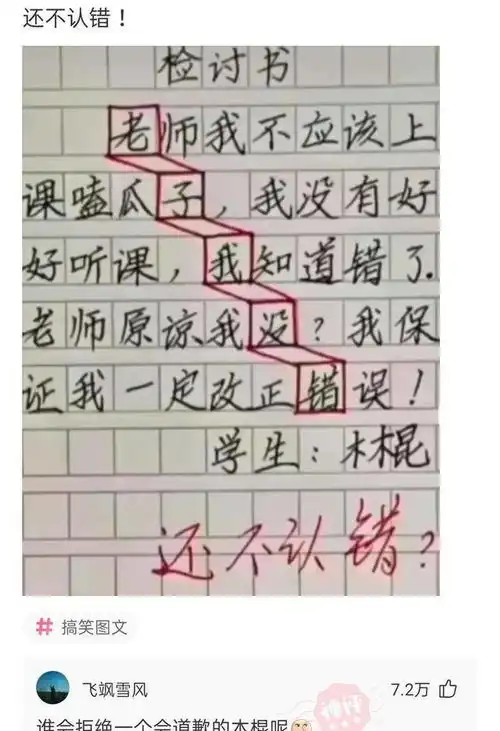 还不认错！
检讨书
老师我不应该上
课嗑瓜子，我没有好
好听课，我知道错了.
老师原谅我没？我保
证我一定改正错误！
学生：木木棍
还不认错？
# 搞笑图文
飞飒雪风
7.2万
谁会拒绝一个会道歉的木棍呢
神评